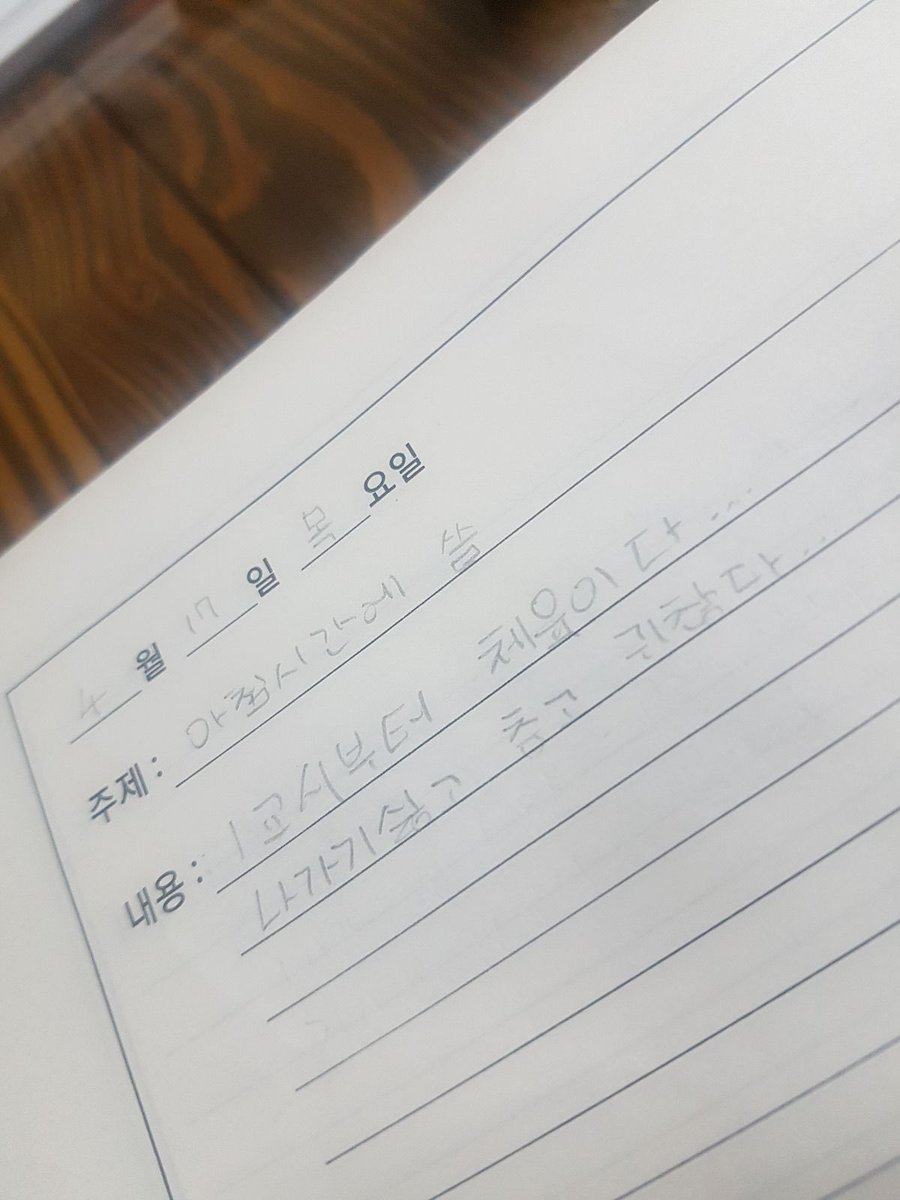 4월 17일 목요일
주제: 아침시간에 씀
내용: 1교시부터 체육이다...
나가기싫고 춥고 귀찮다...